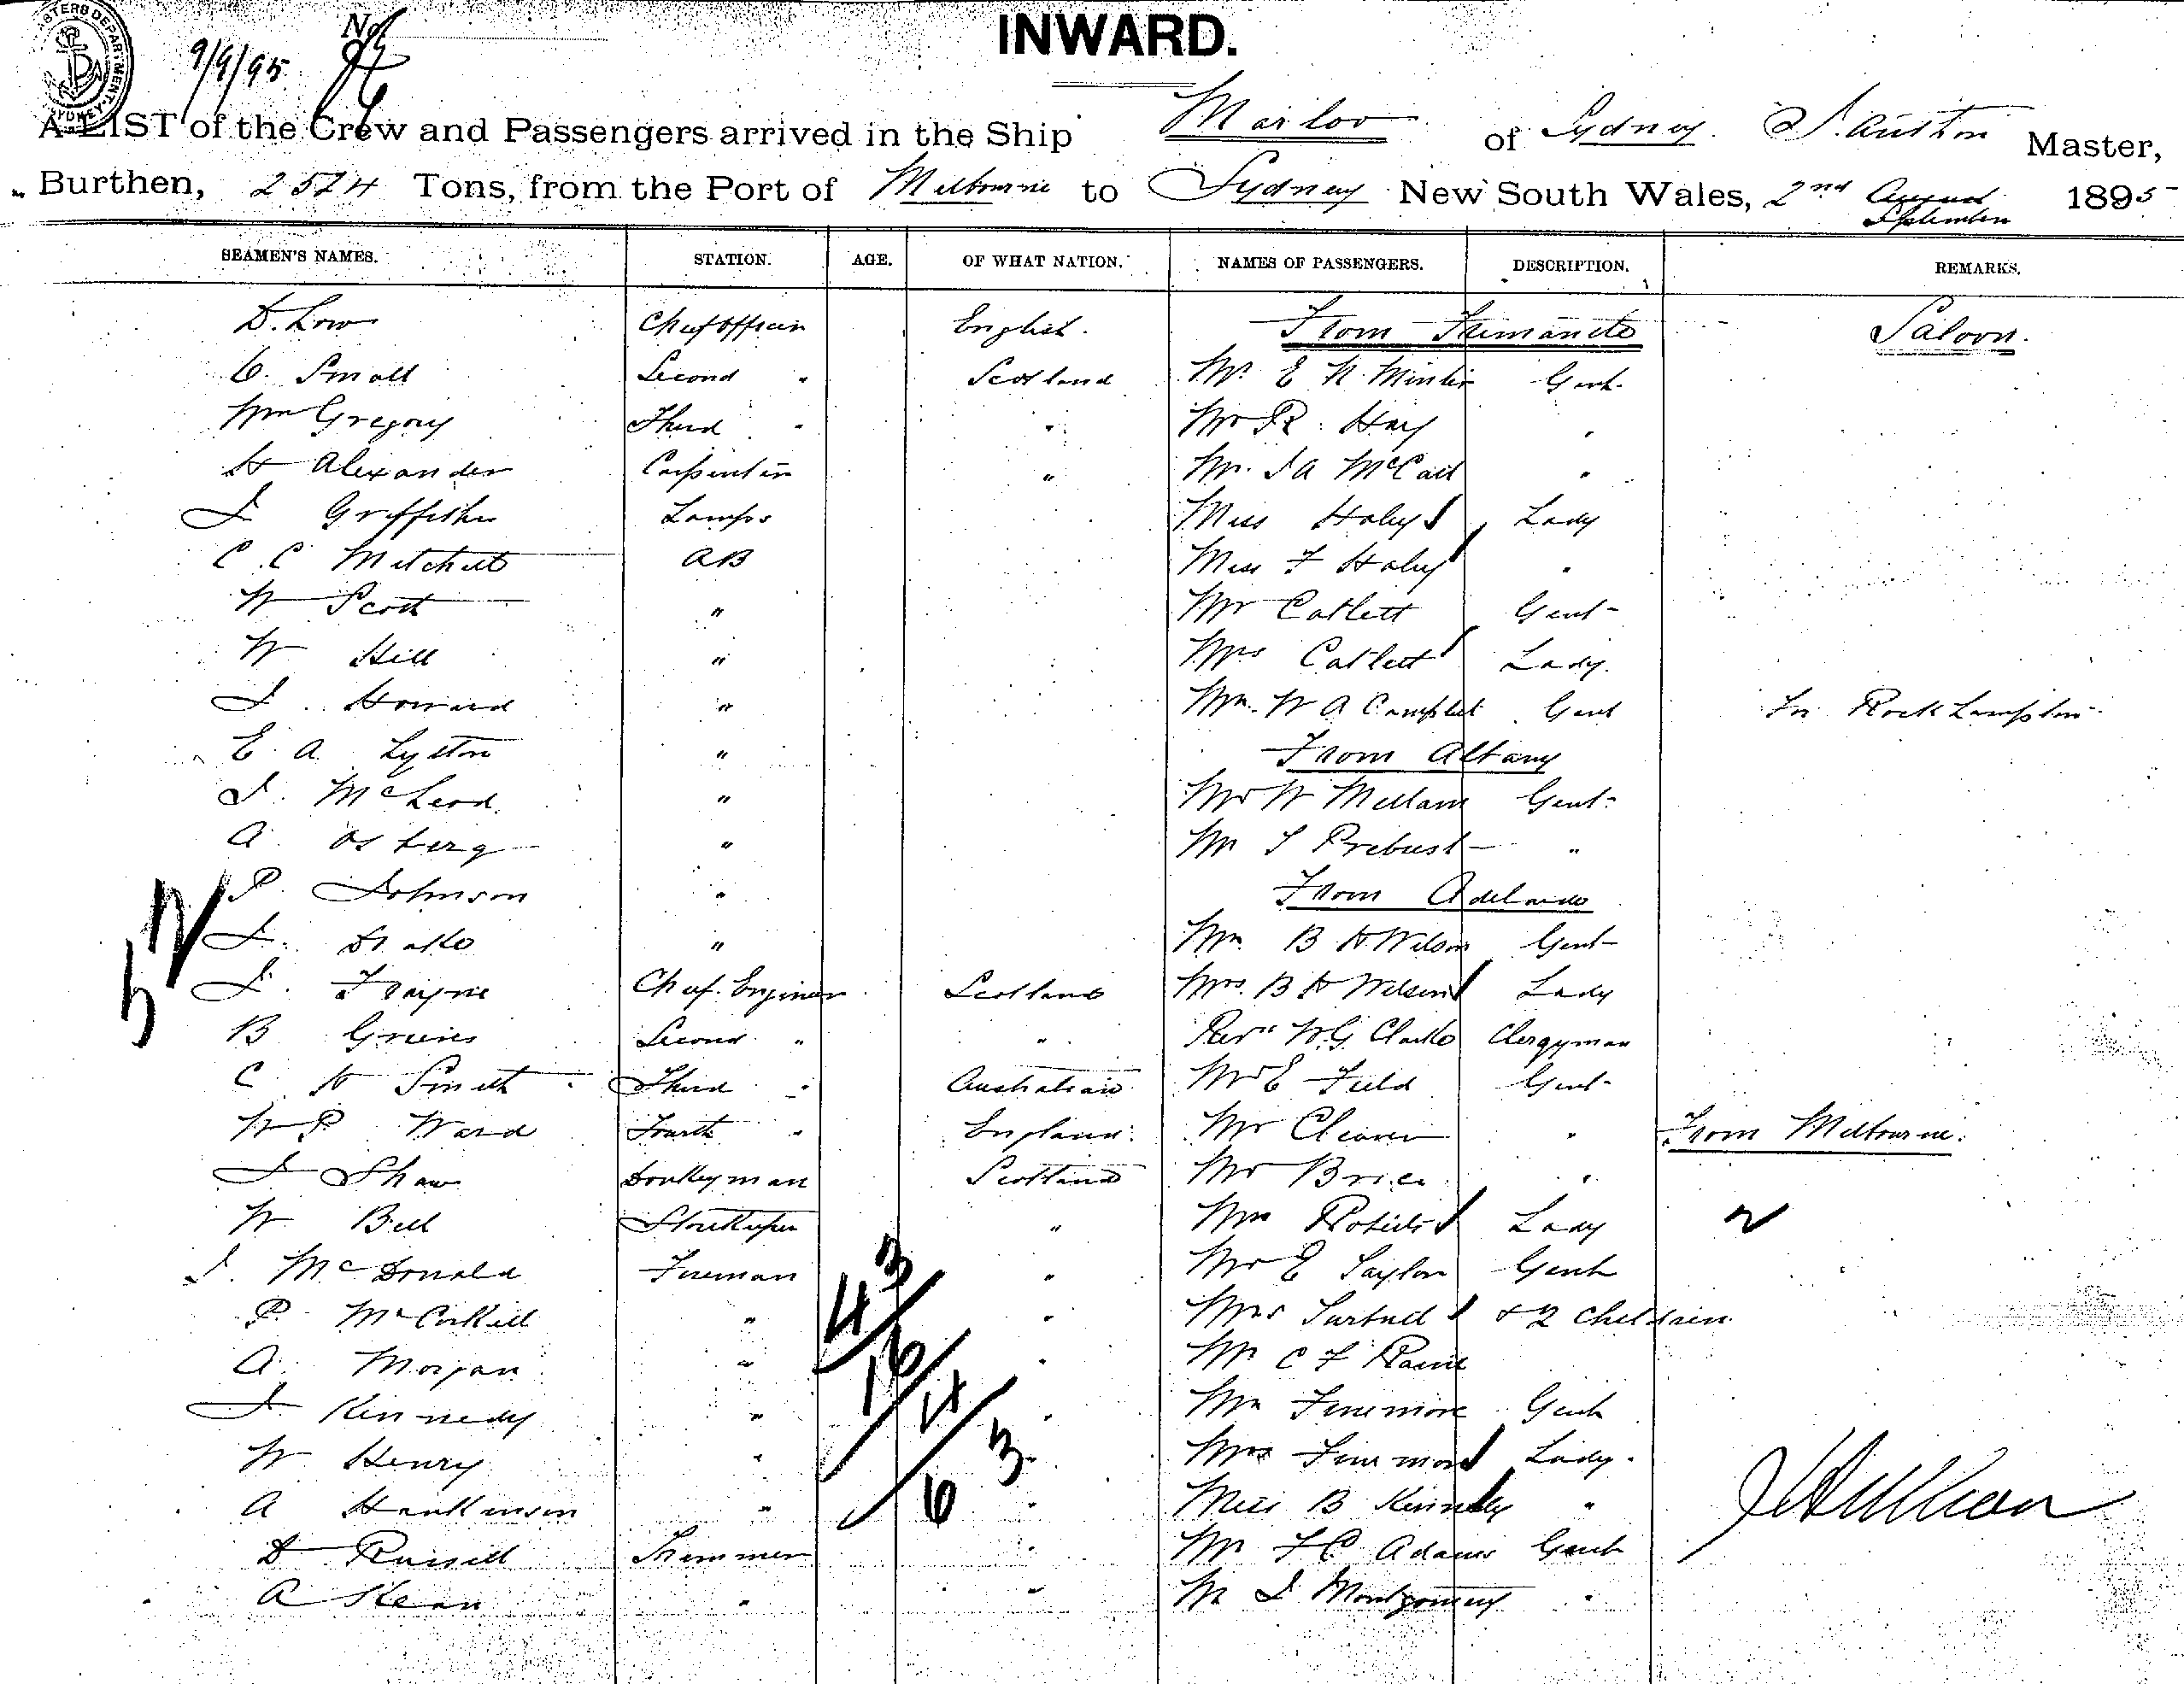 9/9/95 No
INWARD.
A LIST of the Crew and Passengers arrived in the Ship of Sydney. Master,
Burthen, 2524 Tons, from the Port of Melbourne to Sydney New South Wales, 2nd August September 1895
SEAMEN'S NAMES. STATION. AGE. OF WHAT NATION. NAMES OF PASSENGERS. DESCRIPTION. REMARKS.
D. Low Chief Officer English. From Fremantle Saloon.
C. Small Second " Scotland Mr E N Gent.
Wm Gregory Third " " Mr R. Hay "
H Alexander Carpenter " Mr. J A McCall "
J Griffiths Lamps Miss Lady
C. C Mitchell AB Miss F "
W Scott " Mr Catlett Gent-
W Hill " Mrs Catlett Lady.
J. Howard " Mr. W A Gent For Rockhampton
E. A. Lytton " From Albany
J. McLeod. " Mr W Mellam Gent-
A. Osberg " Mr S "
P. Johnson " From Adelaide
J. " Mr B H Wilson Gent-
J. Frayne Chief. Engineer Scotland Mrs. B H Wilson Lady
B Second " " Revd W. G Clarke Clergyman
C H Smith Third " Australian Mr E Field Gent-
W P Ward Fourth " England. Mr Cleaver " From Melbourne.
J Shaw Donkeyman Scotland Mr Brice "
W Bell Storekeeper " Lady
J. McDonald Fireman " Mr E Taylor Gent
P. McCorkill " " Mrs & 2 Children
A. Morgan " " Mr C F
J Kennedy " " Mr Finnimore Gent
W Henry " " Mrs Finnimore Lady.
A Hankinson " " Miss B Kennedy "
D Russell Trimmer " Mr F C Adams Gent
A Kean " " Mr J Montgomery "